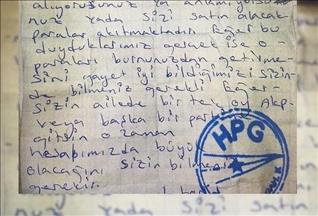 alıyorsunuz ya anlamıyorsu
nuz yada sizi satın alacak
paralar akıtmaktadır. Eğer bu
duyduklarımız gerçek ise o
paraları burnunuzdan getirme-
sini gayet iyi bildiğimizi sizin-
de bilmeniz gerekli Eğer
sizin ailede bir tek oy Akp-
veya başka bir par
gitsin o zaman
hesapımızda büyü
olacağını sizin bilme
gerekli.
HPG
nuz yada sizi satın